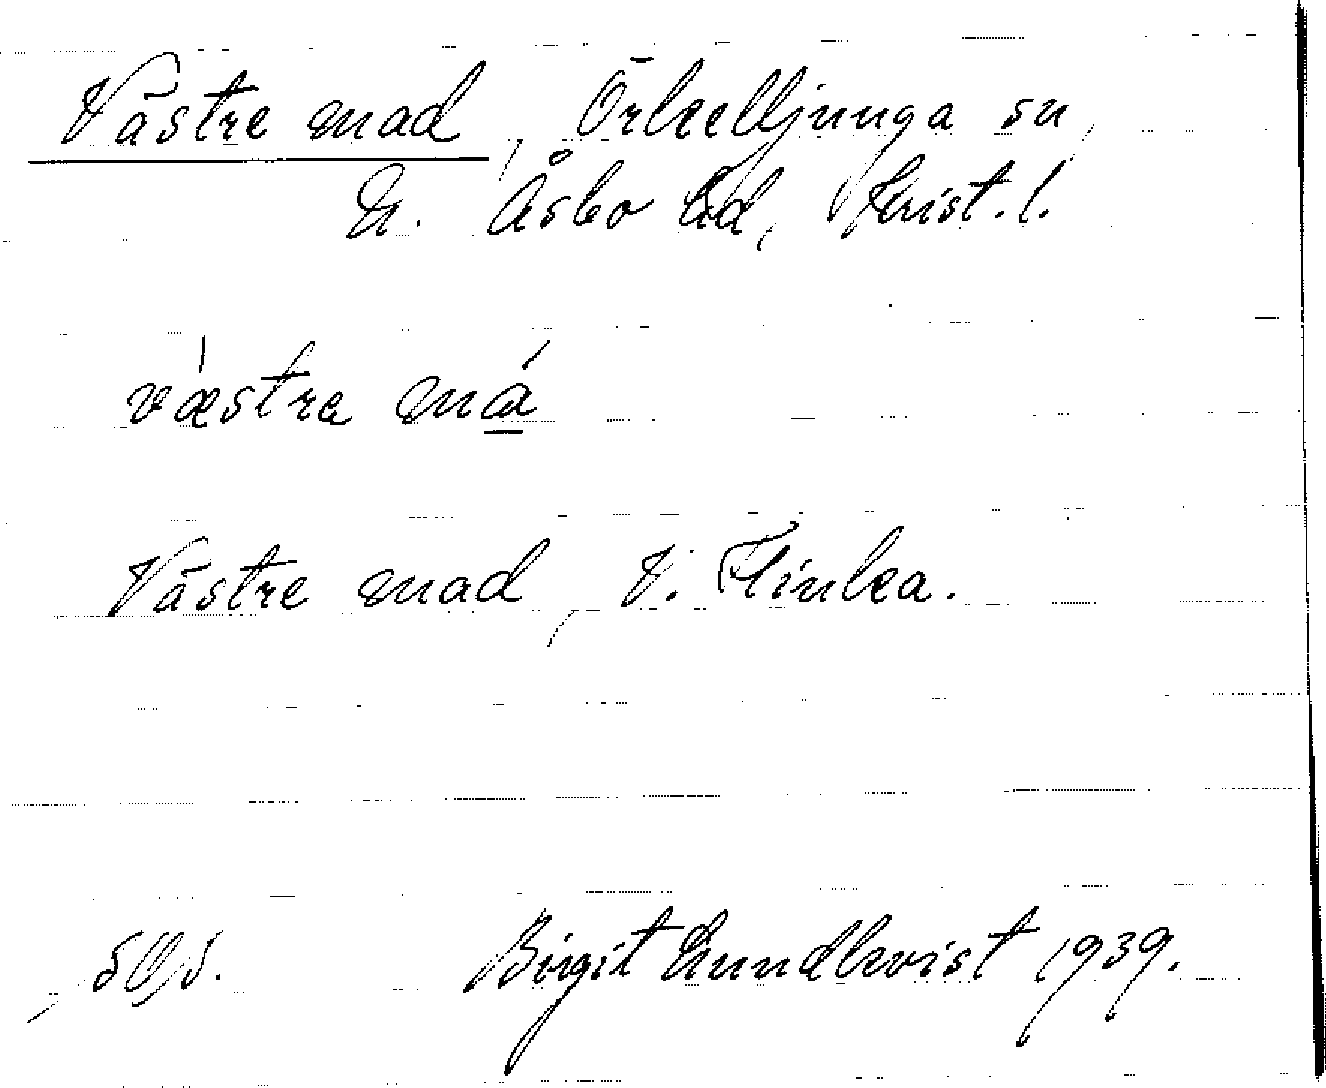 Västre mad, Örkelljunga sn,
N. Åsbo hd, Krist. l.
væ̍stre má̲
Västre mad, V. Flinka.
Birgit Lundkvist 1939.